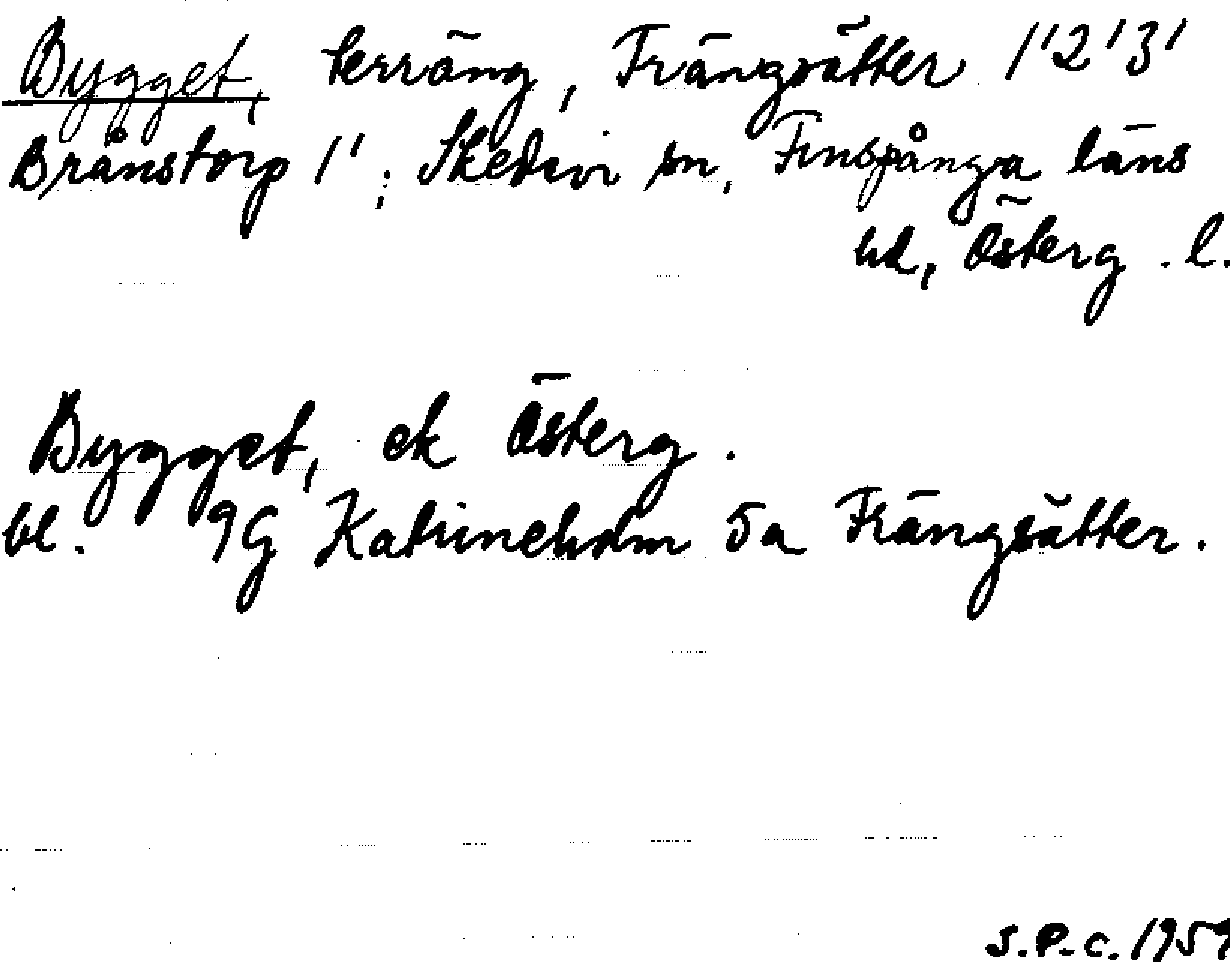 Bygget, terräng, Frängsätter 1'2'3'
Brånstorp 1'; Skedevi sn, Finspånga läns
hd, Österg. l.
Bygget, ek Österg.
bl. 9G Katrineholm 5a Frängsätter.
S.P.C. 1959